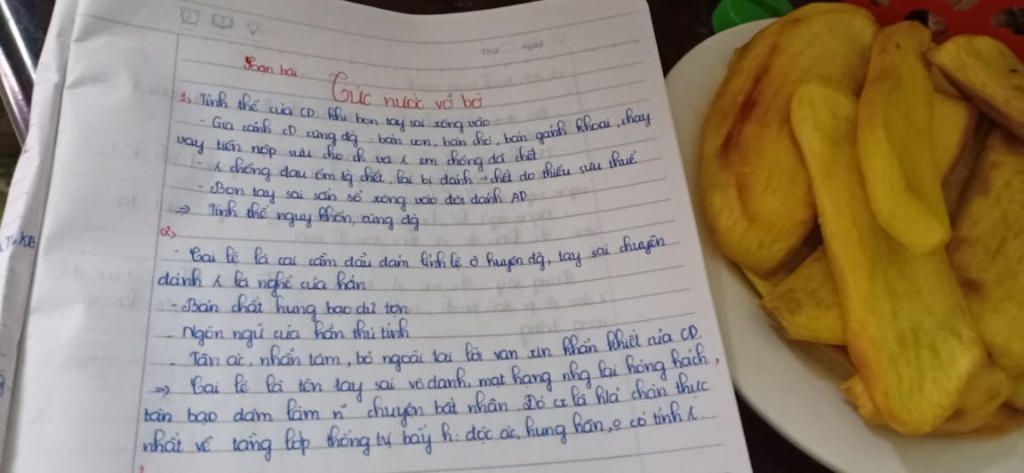 Thứ Ngày
Soạn bài:
Tức nước vỡ bờ
1, Tình thế của CD khi bọn tay sai xông vào
- Gia cảnh CD cùng đg: bán con, bán chó, bán gánh khoai, chạy
vay tiền nộp sưu cho ck và em chồng đã chết
- chồng đau ốm tg chết, lại bị đánh → chết do thiếu sưu thuế
- Bọn tay sai sấn sổ xông vào đòi đánh AD
=> Tình thế nguy khốn, cùng đg
2,
- Cai lệ là cai cầm đầu đám lính lệ ở huyện đg, tay sai chuyên
đánh là nghề của hắn
- Bản chất hung bạo dữ tợn
- Ngôn ngữ của hắn thú tính
- Tàn ác, nhẫn tâm, bỏ ngoài tai lời van xin khẩn khiết của CD.
=> Cai lệ là tên tay sai vô danh, mạt hạng nhg lại hống hách,
tàn bạo dám làm n~ chuyện bất nhân. Đó cx là h/a chân thực
nhất về tầng lớp thống trị bấy h: độc ác, hung hãn, o có tính